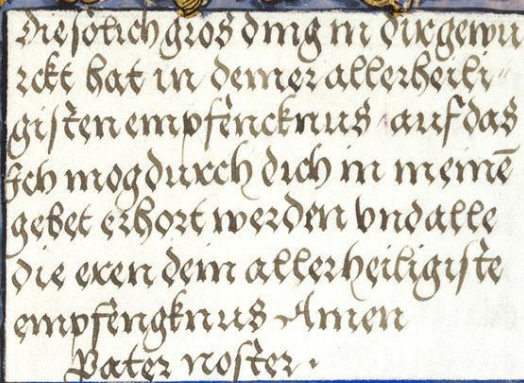 die sölich gros ding in dir gewu
rckt hat in deiner allerheili"
gisten empfencknus auf das
Ich mog durch dich in meinē
gebet erhort werden vnd alle
die eren dein allerheiligiste
empfengknus Amen
Pater noster .